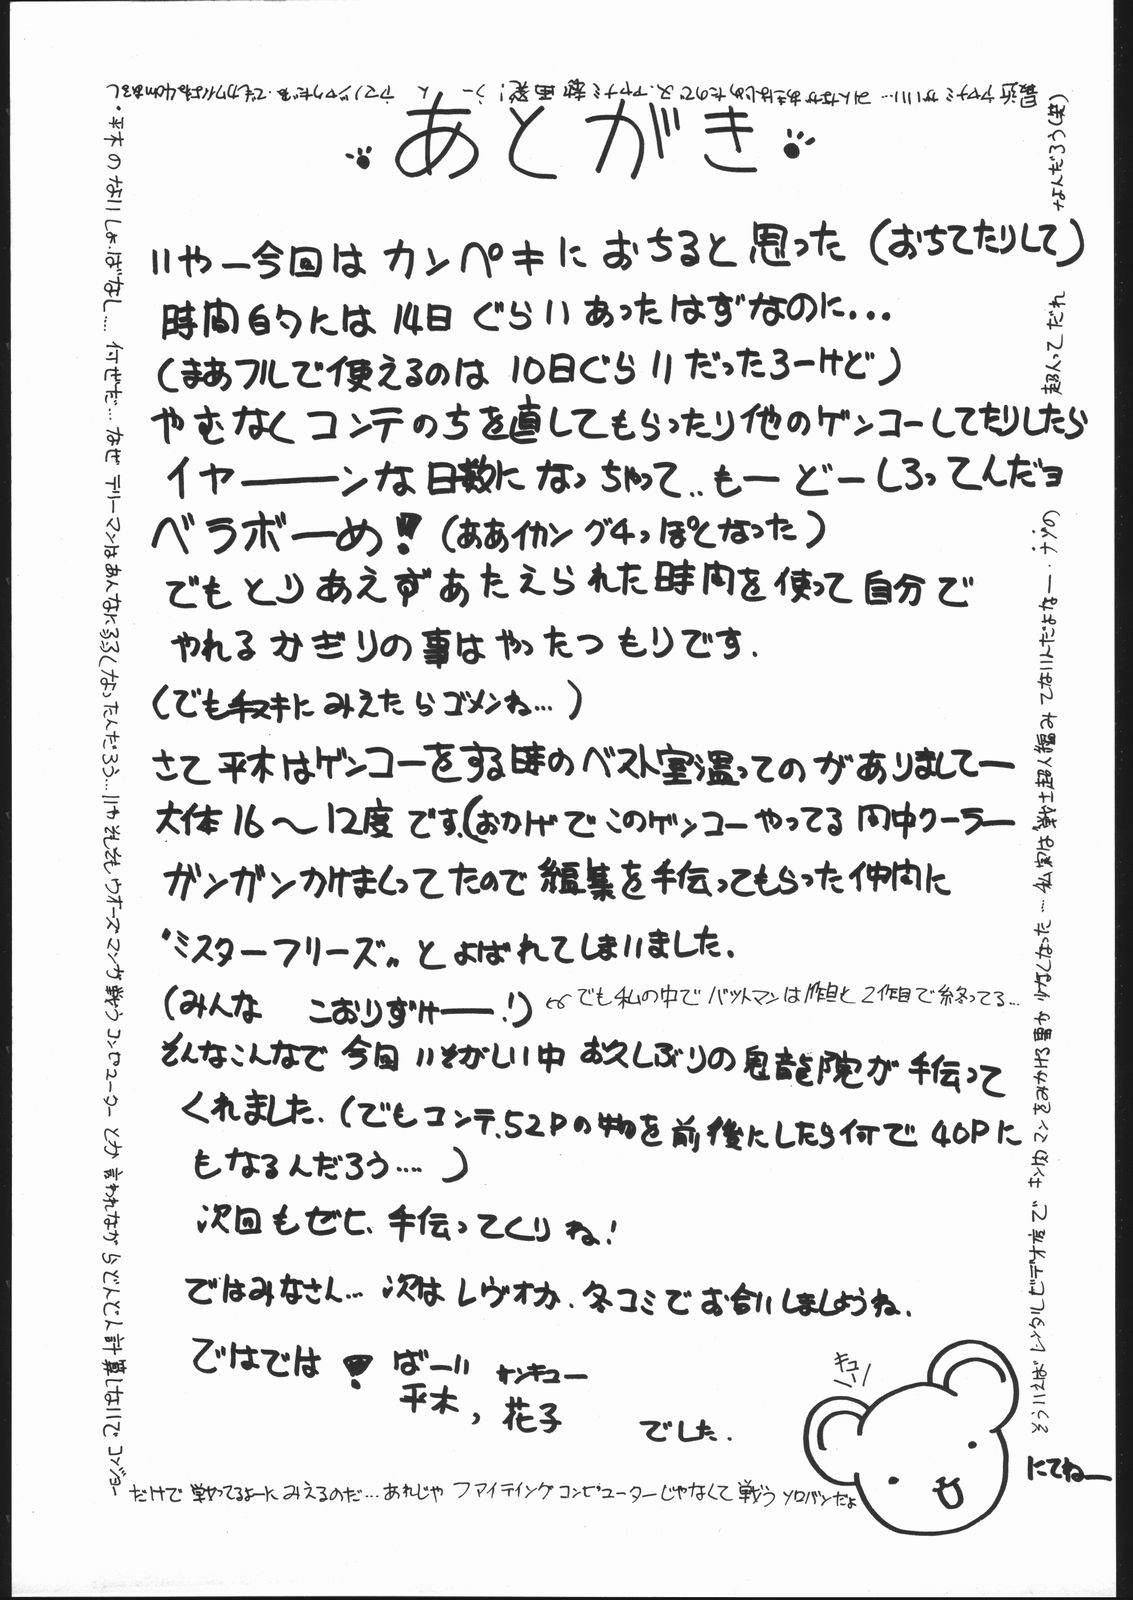 あとがき
いやー今回はカンペキにおちると思った(おちてたりして)
時間的には14日ぐらいあったはずなのに...
(まあフルで使えるのは10日ぐらいだったろーけど)
やむなくコンテのちを直してもらったり他のゲンコーしてたりしたら
イヤーーーンな日数になっちゃって..もーどーしろってんだヨ
ベラボーめ!(ああイカン グチっぽくなった)
でもとりあえずあたえられた時間を使って自分で
やれるかぎりの事はやったつもりです.
(でも手ヌキにみえたらゴメンね...)
さて平木はゲンコーをする時のベスト室温ってのがありましてー
大体16〜12度です.(おかげでこのゲンコーやってる間中クーラー
ガンガンかけまくってたので編集を手伝ってもらった仲間に
"ミスターフリーズ"とよばれてしまいました.
(みんな こおりずけーー!)
でも私の中でバットマンは1作目と2作目で終ってる...
そんなこんなで今回いそがしい中お久しぶりの鬼龍院が手伝って
くれました.(でもコンテ、52Pの物を前後にしたら何で40Pに
もなるんだろう....)
次回もゼヒ、手伝ってくりね!
ではみなさん...次はレヴォか、冬コミでお合いしましょうね.
ではでは! ばーい サンキュー
平木, 花子 でした.
キュー
にてねー
・平木のないしょばなし....何ぜだ...なぜテリーマンはあんなにふるくなったんだろう...いやそもそもウォーズマンが戦うコンピューターとか言われながらどんどん計算しないでコンジョー
だけで戦ってるよーにみえるのだ...あれじゃファイティングコンピューターじゃなくて戦うソロバンだよ
そういえばレンタルビデオ店でキン肉マンをみかける事が少なくなった...私実は"戦士超人編みてないんだよなー.ナゾの
超人ってだれ
なんだろう(笑)